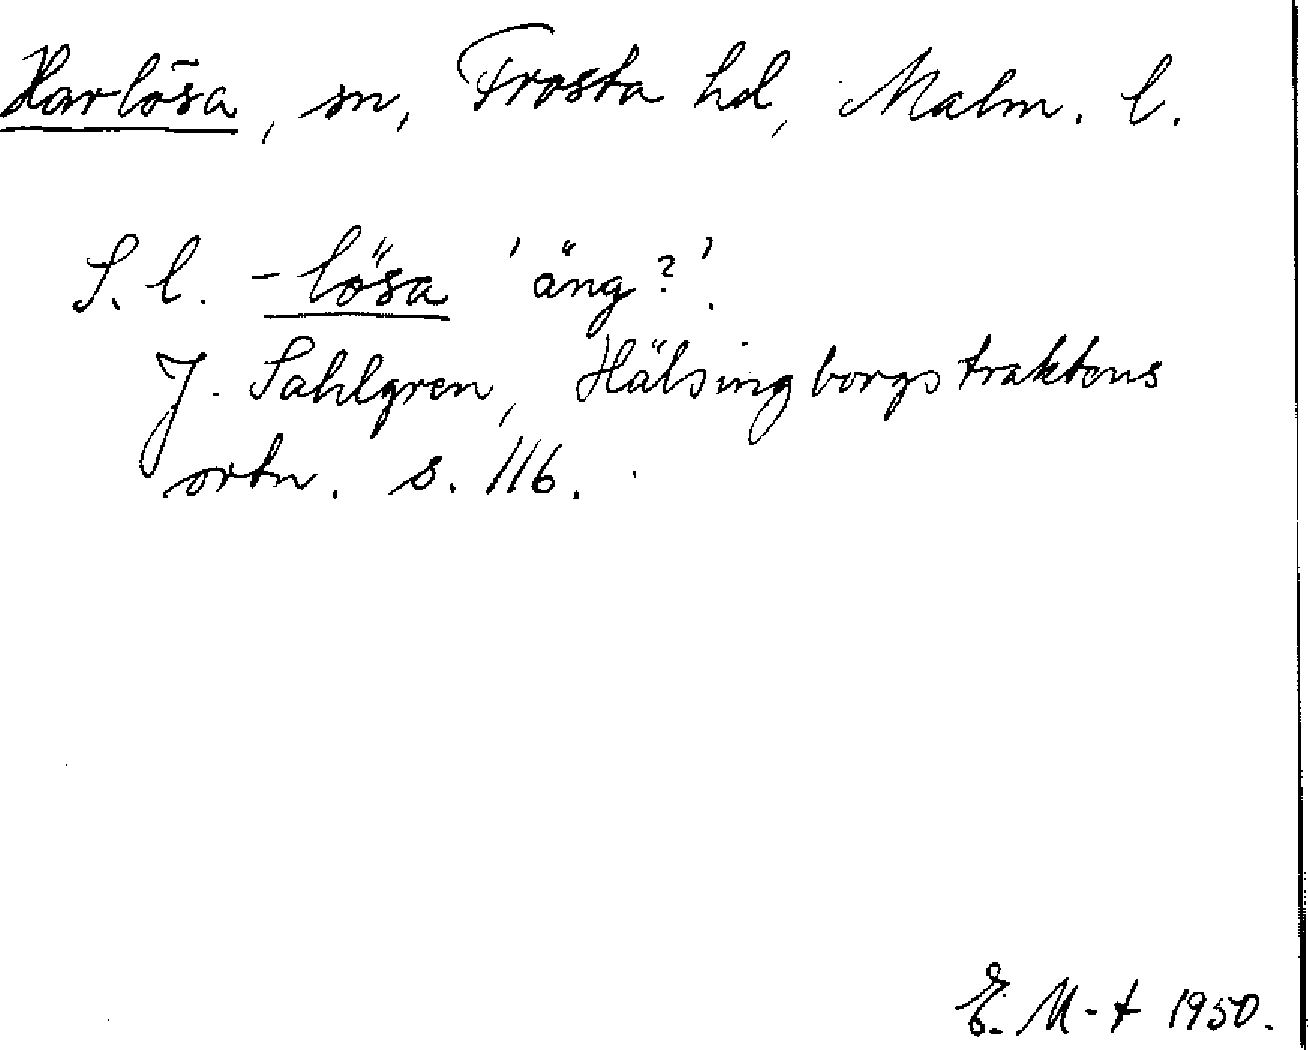 Harlösa, sn, Frosta hd, Malm. l.
S. l. -lösa 'äng?'.
J. Sahlgren, Hälsingborgstraktens
ortn. s. 116.
E. M-t 1950.